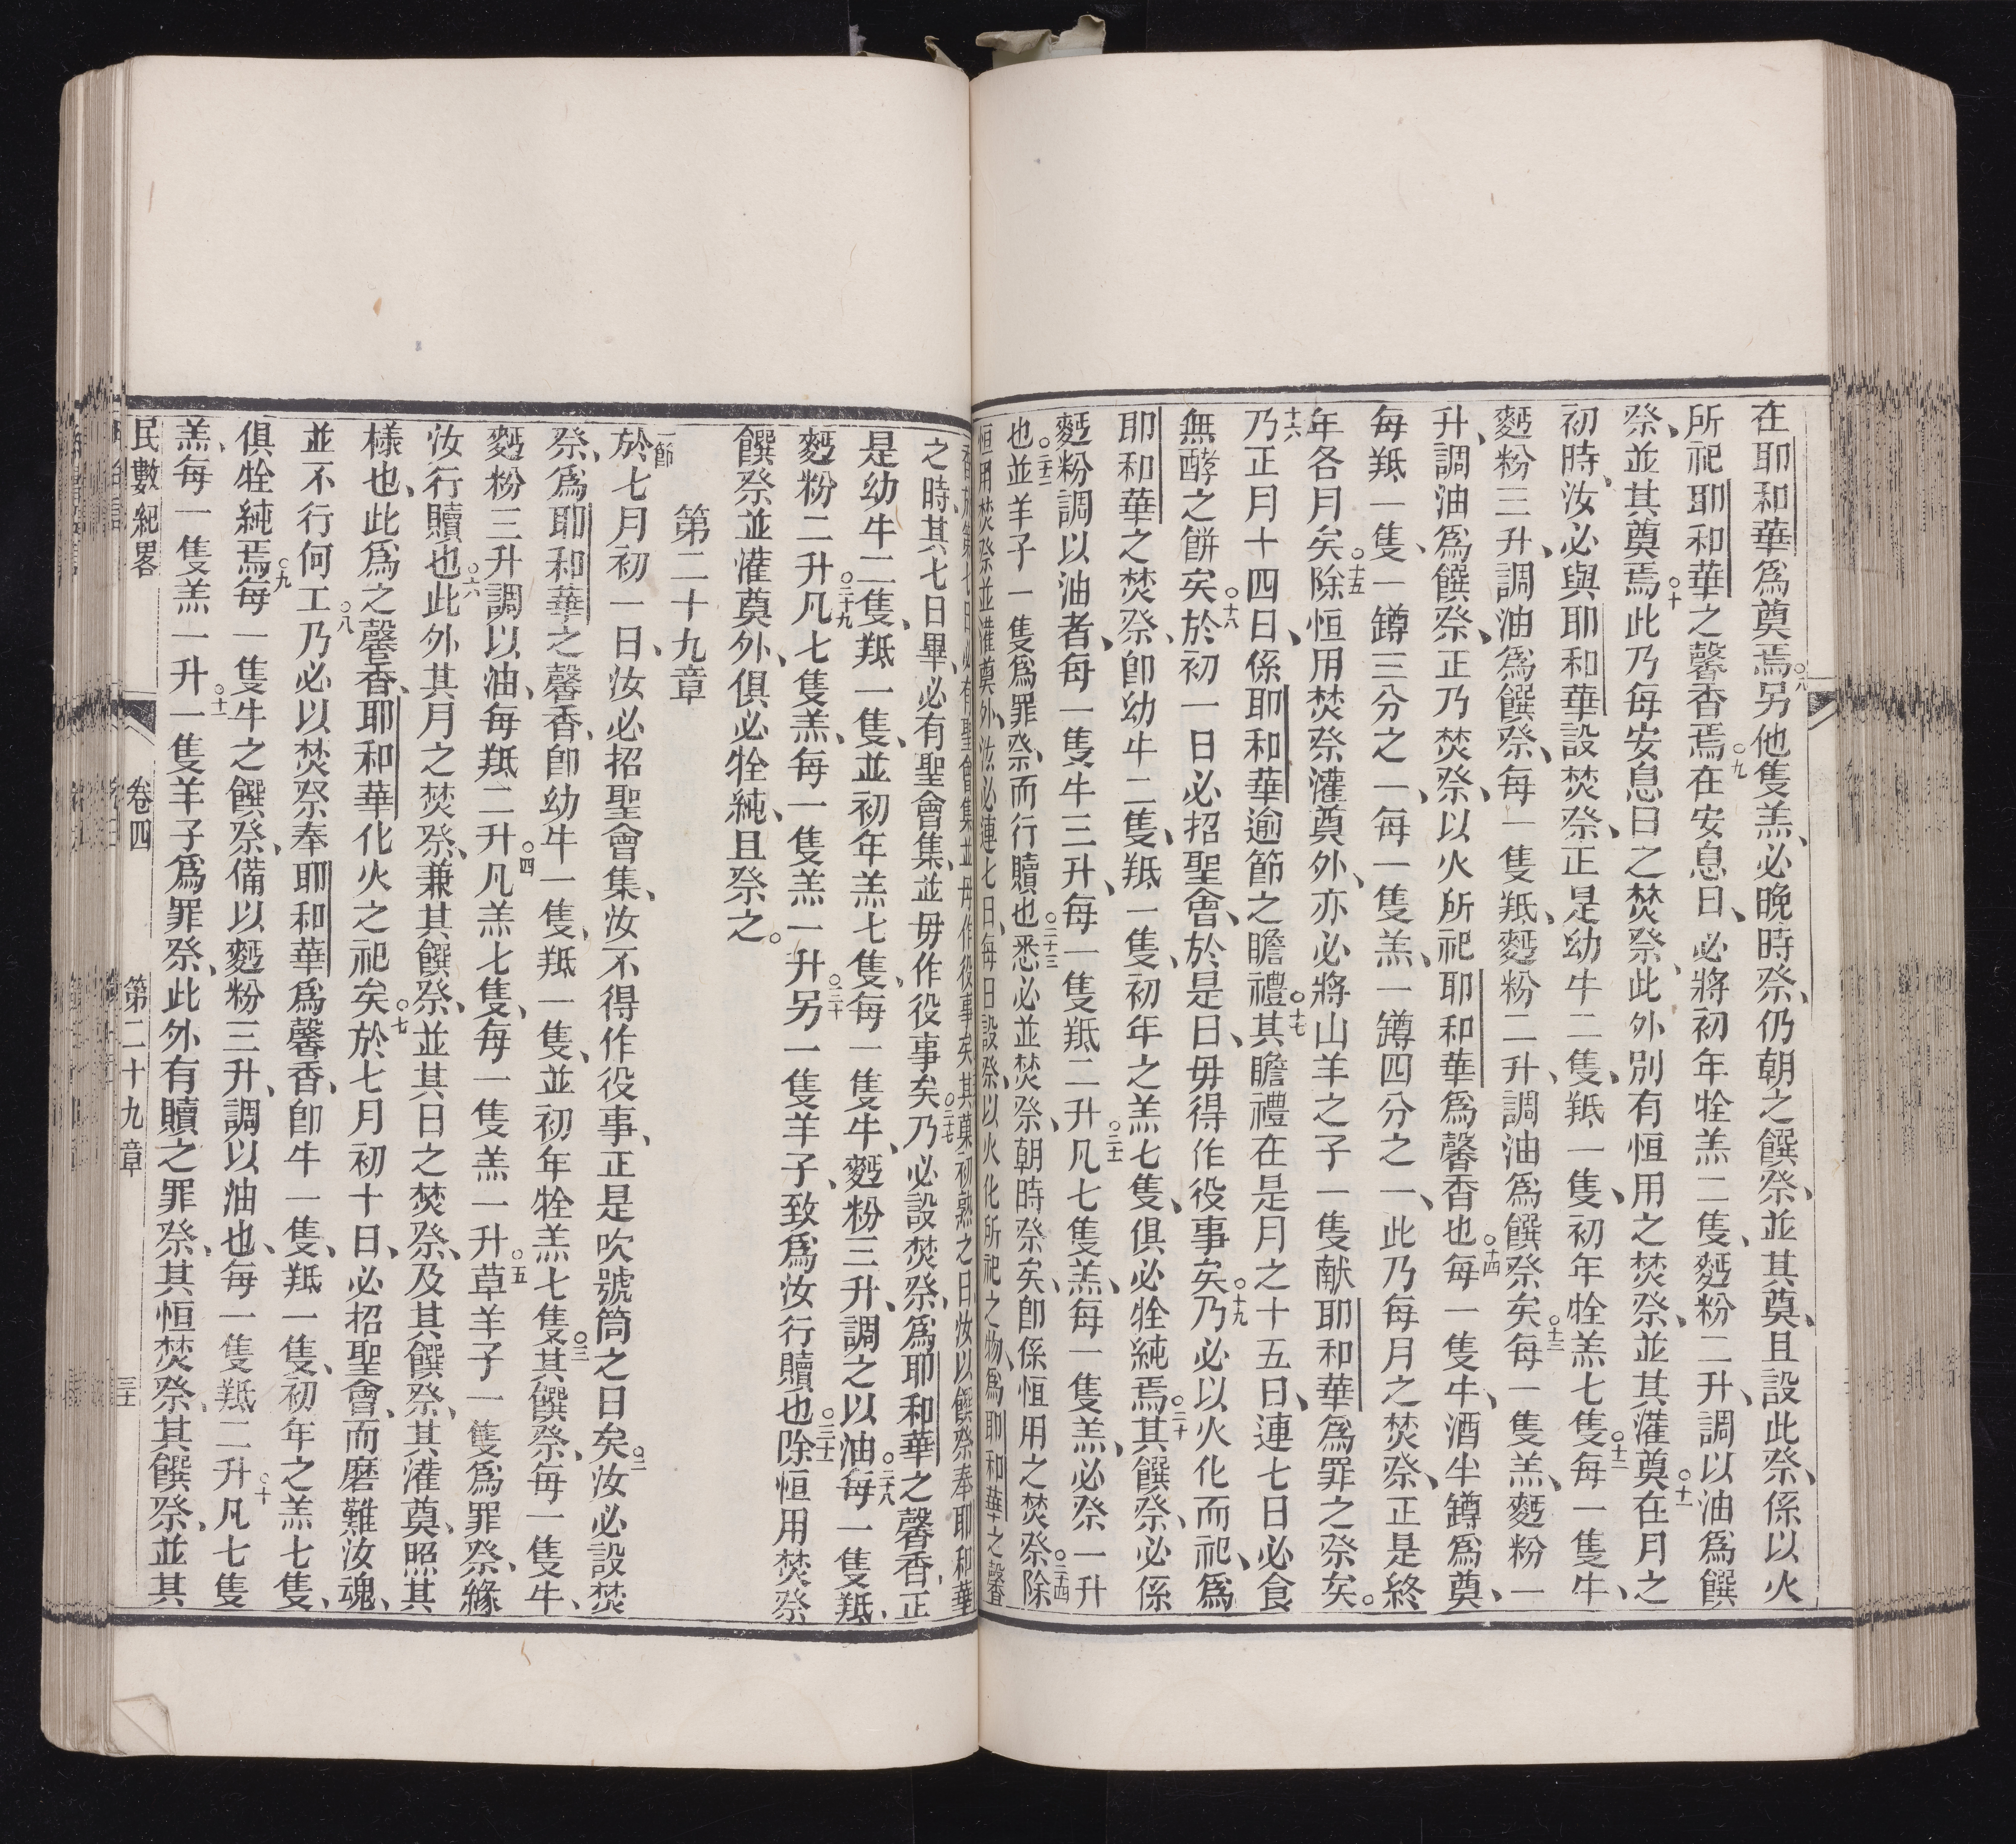 在耶和華爲奠焉○八另他隻羔、必晚時祭、仍朝之饌祭、並其奠、且設此祭、係以火
所祀耶和華之馨香焉○九在安息日、必將初年牷羔二隻、麪粉二升、調以油爲饌
祭、並其奠焉○十此乃每安息日之焚祭、此外別有恒用之焚祭、並其灌奠○十一在月之
初時、汝必與耶和華設焚祭、正是幼牛二隻、羝一隻、初年牷羔七隻○十二每一隻牛、
麪粉三升、調油爲饌祭、每一隻羝、麪粉二升、調油爲饌祭矣○十三每一隻羔、麪粉一
升、調油爲饌祭、正乃焚祭、以火所祀耶和華爲馨香也○十四每一隻牛、酒半罇爲奠、
每羝一隻、一罇三分之一、每一隻羔、一罇四分之一、此乃每月之焚祭、正是終
年各月矣○十五除恒用焚祭灌奠外、亦必將山羊之子一隻献耶和華爲罪之祭矣。
十六乃正月十四日、係耶和華逾節之瞻禮○十七其瞻禮在是月之十五日、連七日必食
無酵之餅矣○十八於初一日必招聖會、於是日、毋得作役事矣○十九乃必以火化而祀、爲
耶和華之焚祭、卽幼牛二隻、羝一隻、初年之羔七隻、俱必牷純焉○二十其饌祭、必係
麪粉調以油者、每一隻牛三升、每一隻羝二升○二十一凡七隻羔、每一隻羔、必祭一升
也○二十二並羊子一隻爲罪祭、而行贖也○二十三悉必並焚祭、朝時祭矣、卽係恒用之焚祭○二十四除
恒用焚祭並灌奠外、法必連七日、每日設祭、以火化所祀之物、爲耶和華之馨
香於第七日必有聖會集並毋作役事矣其菓初熟之日、汝以饌祭奉耶和華
之時、其七日畢、必有聖會集、並毋作役事矣○二十七乃必設焚祭、爲耶和華之馨香、正
是幼牛二隻、羝一隻、並初年羔七隻、每一隻牛、麪粉三升、調之以油○二十八每一隻羝、
麪粉二升○二十九凡七隻羔、每一隻羔一升○三十另一隻羊子、致爲汝行贖也○三十一除恒用焚祭
饌祭並灌奠外、俱必牷純、且祭之。
第二十九章
一節於七月初一日、汝必招聖會集、汝不得作役事、正是吹號筒之日矣○二汝必設焚
祭、爲耶和華之馨香、卽幼牛一隻、羝一隻、並初年牷羔七隻○三其饌祭、每一隻牛、
麪粉三升調以油、每羝二升○四凡羔七隻、每一隻羔一升○五草羊子一隻爲罪祭、緣
汝行贖也○六此外其月之焚祭、兼其饌祭、並其日之焚祭、及其饌祭、其灌奠、照其
樣也、此爲之馨香、耶和華化火之祀矣○七於七月初十日、必招聖會、而磨難汝魂、
並不行何工○八乃必以焚祭奉耶和華爲馨香、卽牛一隻、羝一隻、初年之羔七隻、
俱牷純焉○九每一隻牛之饌祭、備以麪粉三升、調以油也、每一隻羝二升○十凡七隻
羔、每一隻羔一升○十一一隻羊子爲罪祭、此外有贖之罪祭、其恒焚祭、其饌祭、並其
民數紀畧 卷四 第二十九章 三十